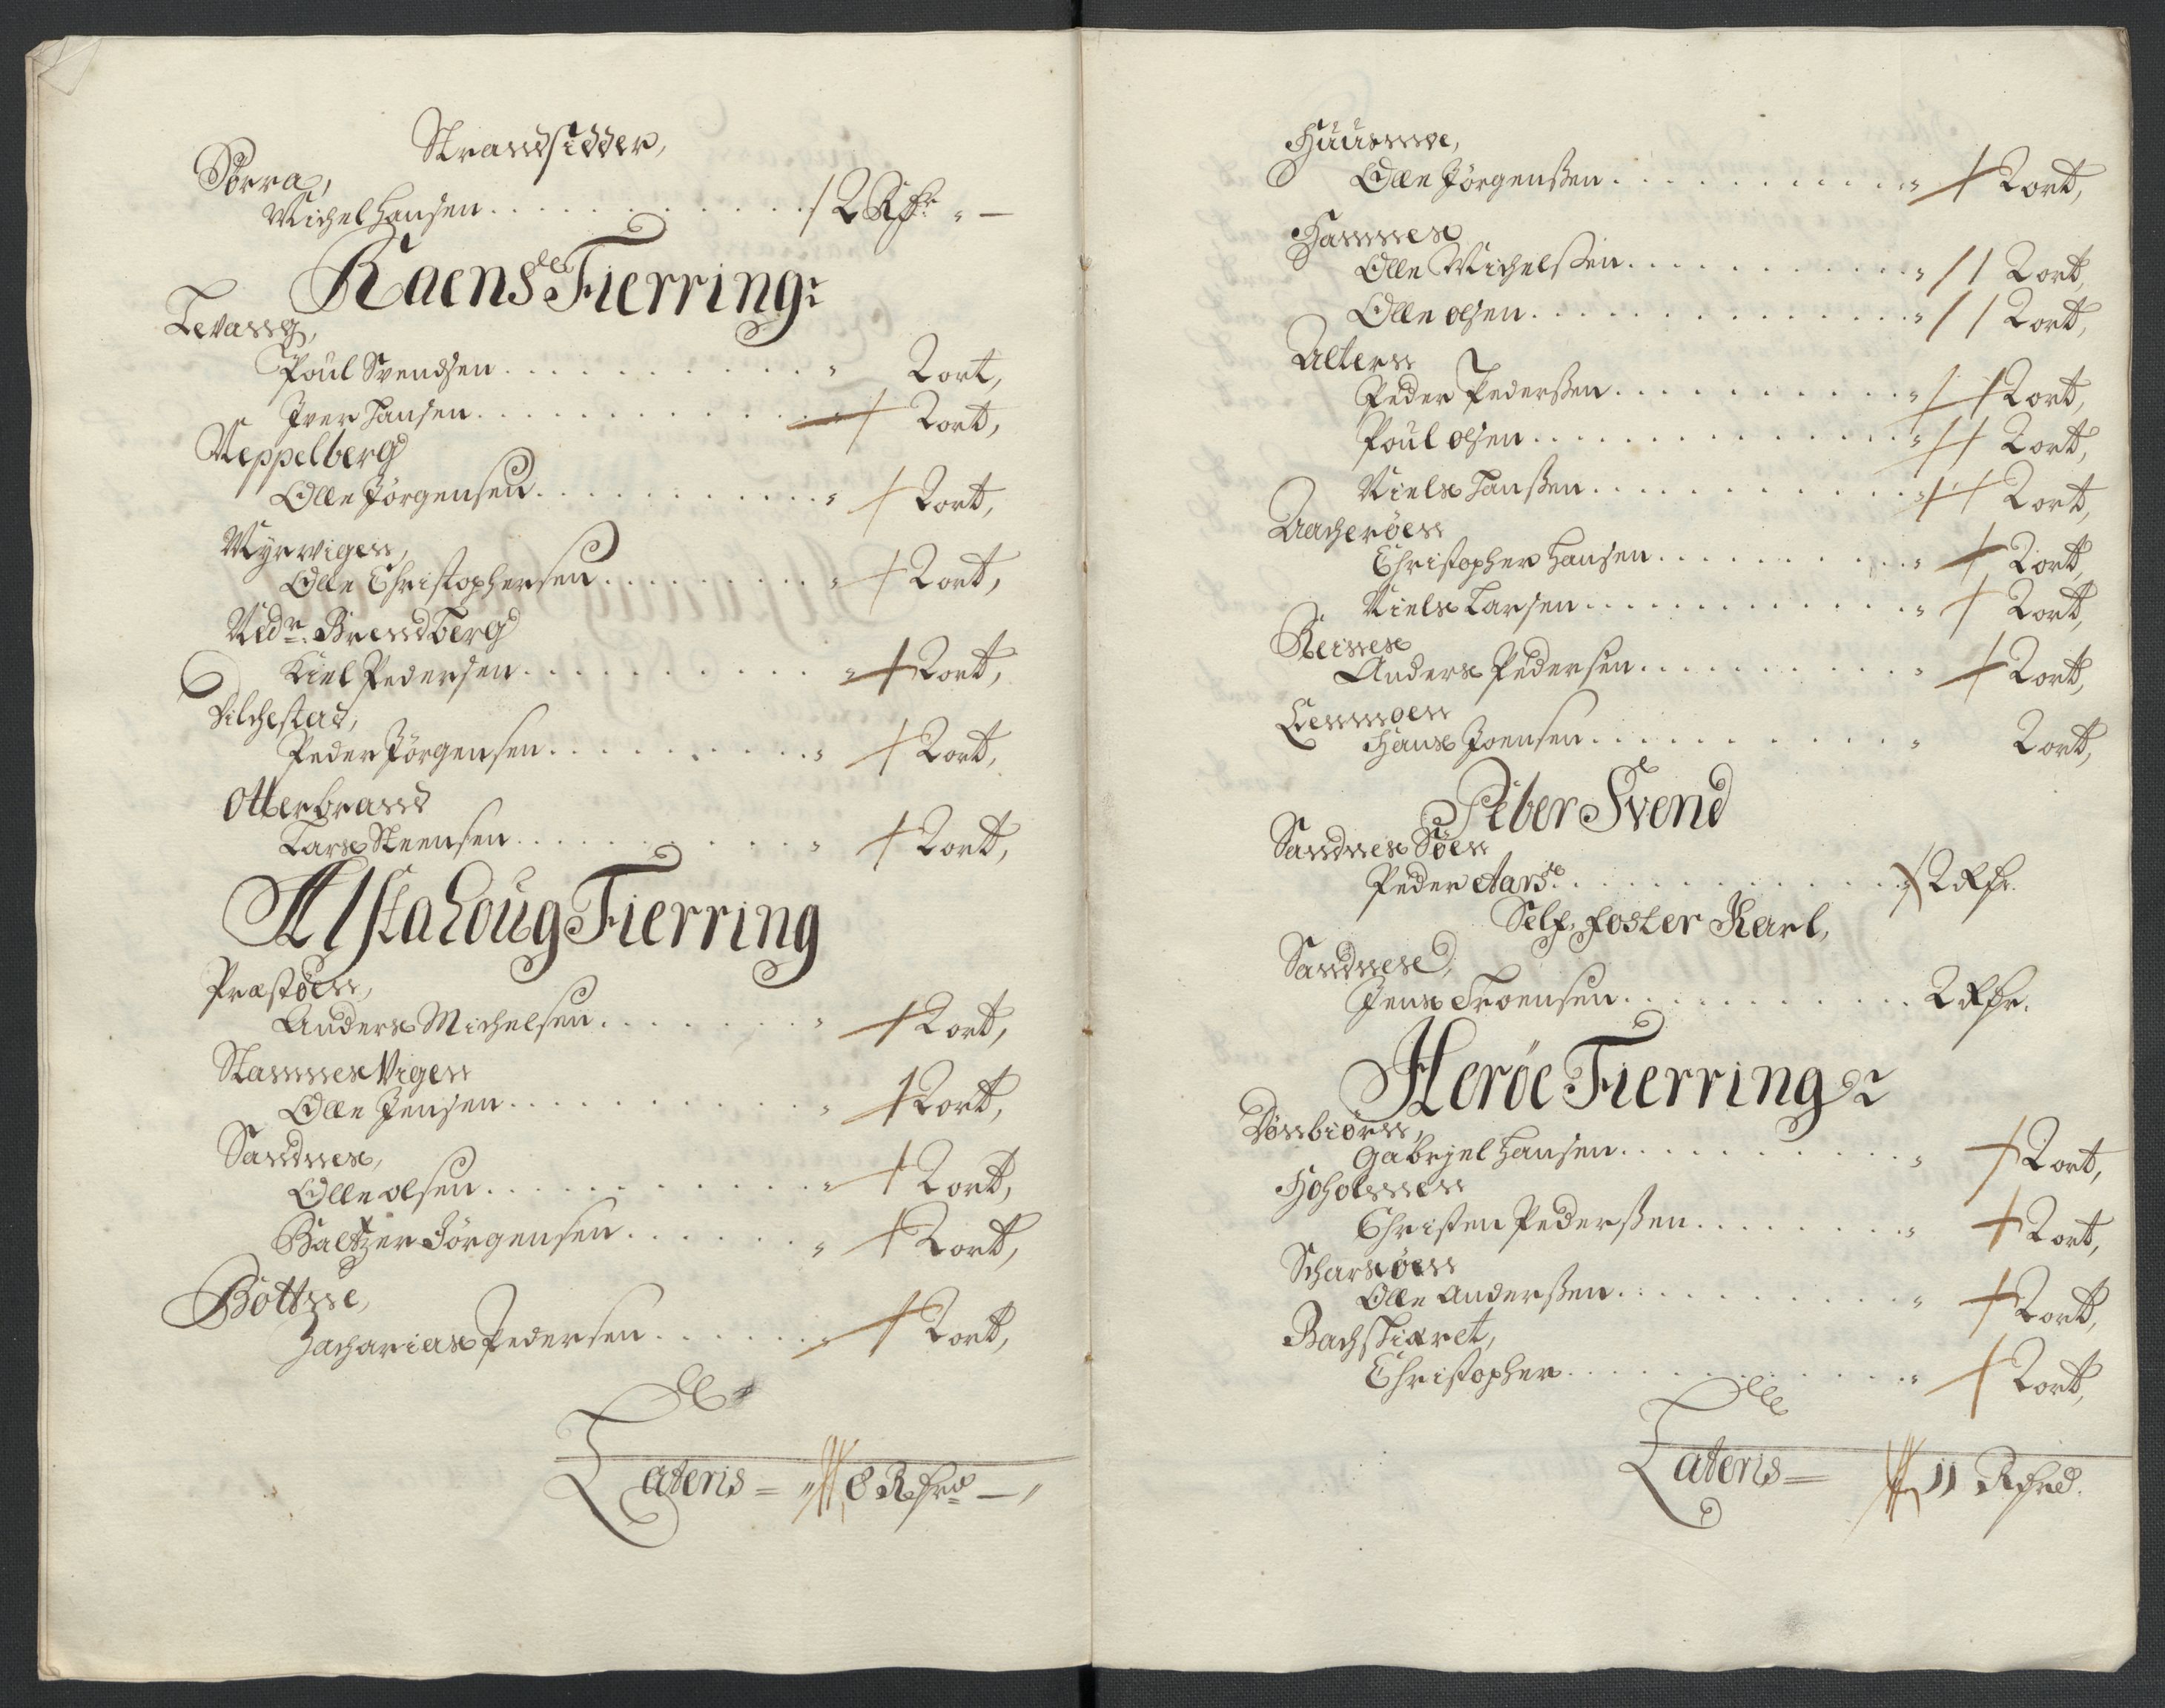 Strandsidder,
Sørra,
Michel Hansen . . . . . . . . . . . / 2 Rdr " —
Raens Fierring:
Levang,
Poul Svendsen . . . . . . . . . . . " 2 ort,
Iver Hansen . . . . . . . . . . . . 2 ort,
Neppelberg
Olle Jørgensen . . . . . . . . . . . " 2 ort,
Myrvigen,
Olle Christophersen . . . . . . . . . " 2 ort,
Nedr: Brendberg
Kiel Pedersen . . . . . . . . . . . " 2 ort,
Vilchestad,
Peder Jørgensen . . . . . . . . . . " 2 ort,
Otterbrand
Lars Steensen . . . . . . . . . . . " 2 ort,
Alstahoug Fierring
Præstøen,
Anders Michelsen . . . . . . . . " 2 ort,
Stamnes Vigen
Olle Jensen . . . . . . . . . . . " 2 ort,
Sandnes,
Olle olsen . . . . . . . . . . . . " 2 ort,
Baltzer Jørgensen . . . . . . . " 2 ort,
Bottne,
Zacharias Pedersen . . . . . . " 2 ort,
Lateris = " 8 Rdr — "
Huusmoe,
Olle Jørgenßen . . . . . . . . . . " 2 ort,
Hamnes
Olle Michelßen . . . . . . . . . . " / / 2 ort,
Olle olsen . . . . . . . . . . . . . " / / 2 ort,
Altern
Peder Pederßen . . . . . . . . . . " 2 ort,
Poul olsen . . . . . . . . . . . . . " 2 ort,
Niels Hanßen . . . . . . . . . . . " 2 ort,
Aacherøen
Christopher Hansen . . . . . . . . " 2 ort,
Niels Larsen . . . . . . . . . . . . " 2 ort,
Reines
Anders Pedersen . . . . . . . . . " 2 ort,
Lenmoen
Hans Joensen . . . . . . . . . . . " 2 ort,
Peber Svend
Sandnes Søen
Peder Aars: . . . . . . . . . . . . 2 Rdr.
Self: foster Karl,
Sandnes,
Jens Troensen . . . . . . . . . . 2 Rdr.
Herøe Fierring
Dønbiørn,
Gabrjel Hansen . . . . . . . . . . " 2 ort,
Hoholmen
Christen Pederßen . . . . . . . . " 2 ort,
Scharsøen
Olle Anderßen . . . . . . . . . . " 2 ort,
Bachstiæret,
Christopher . . . . . . . . . . . . " 2 ort,
Lateris = 11 Rdr.